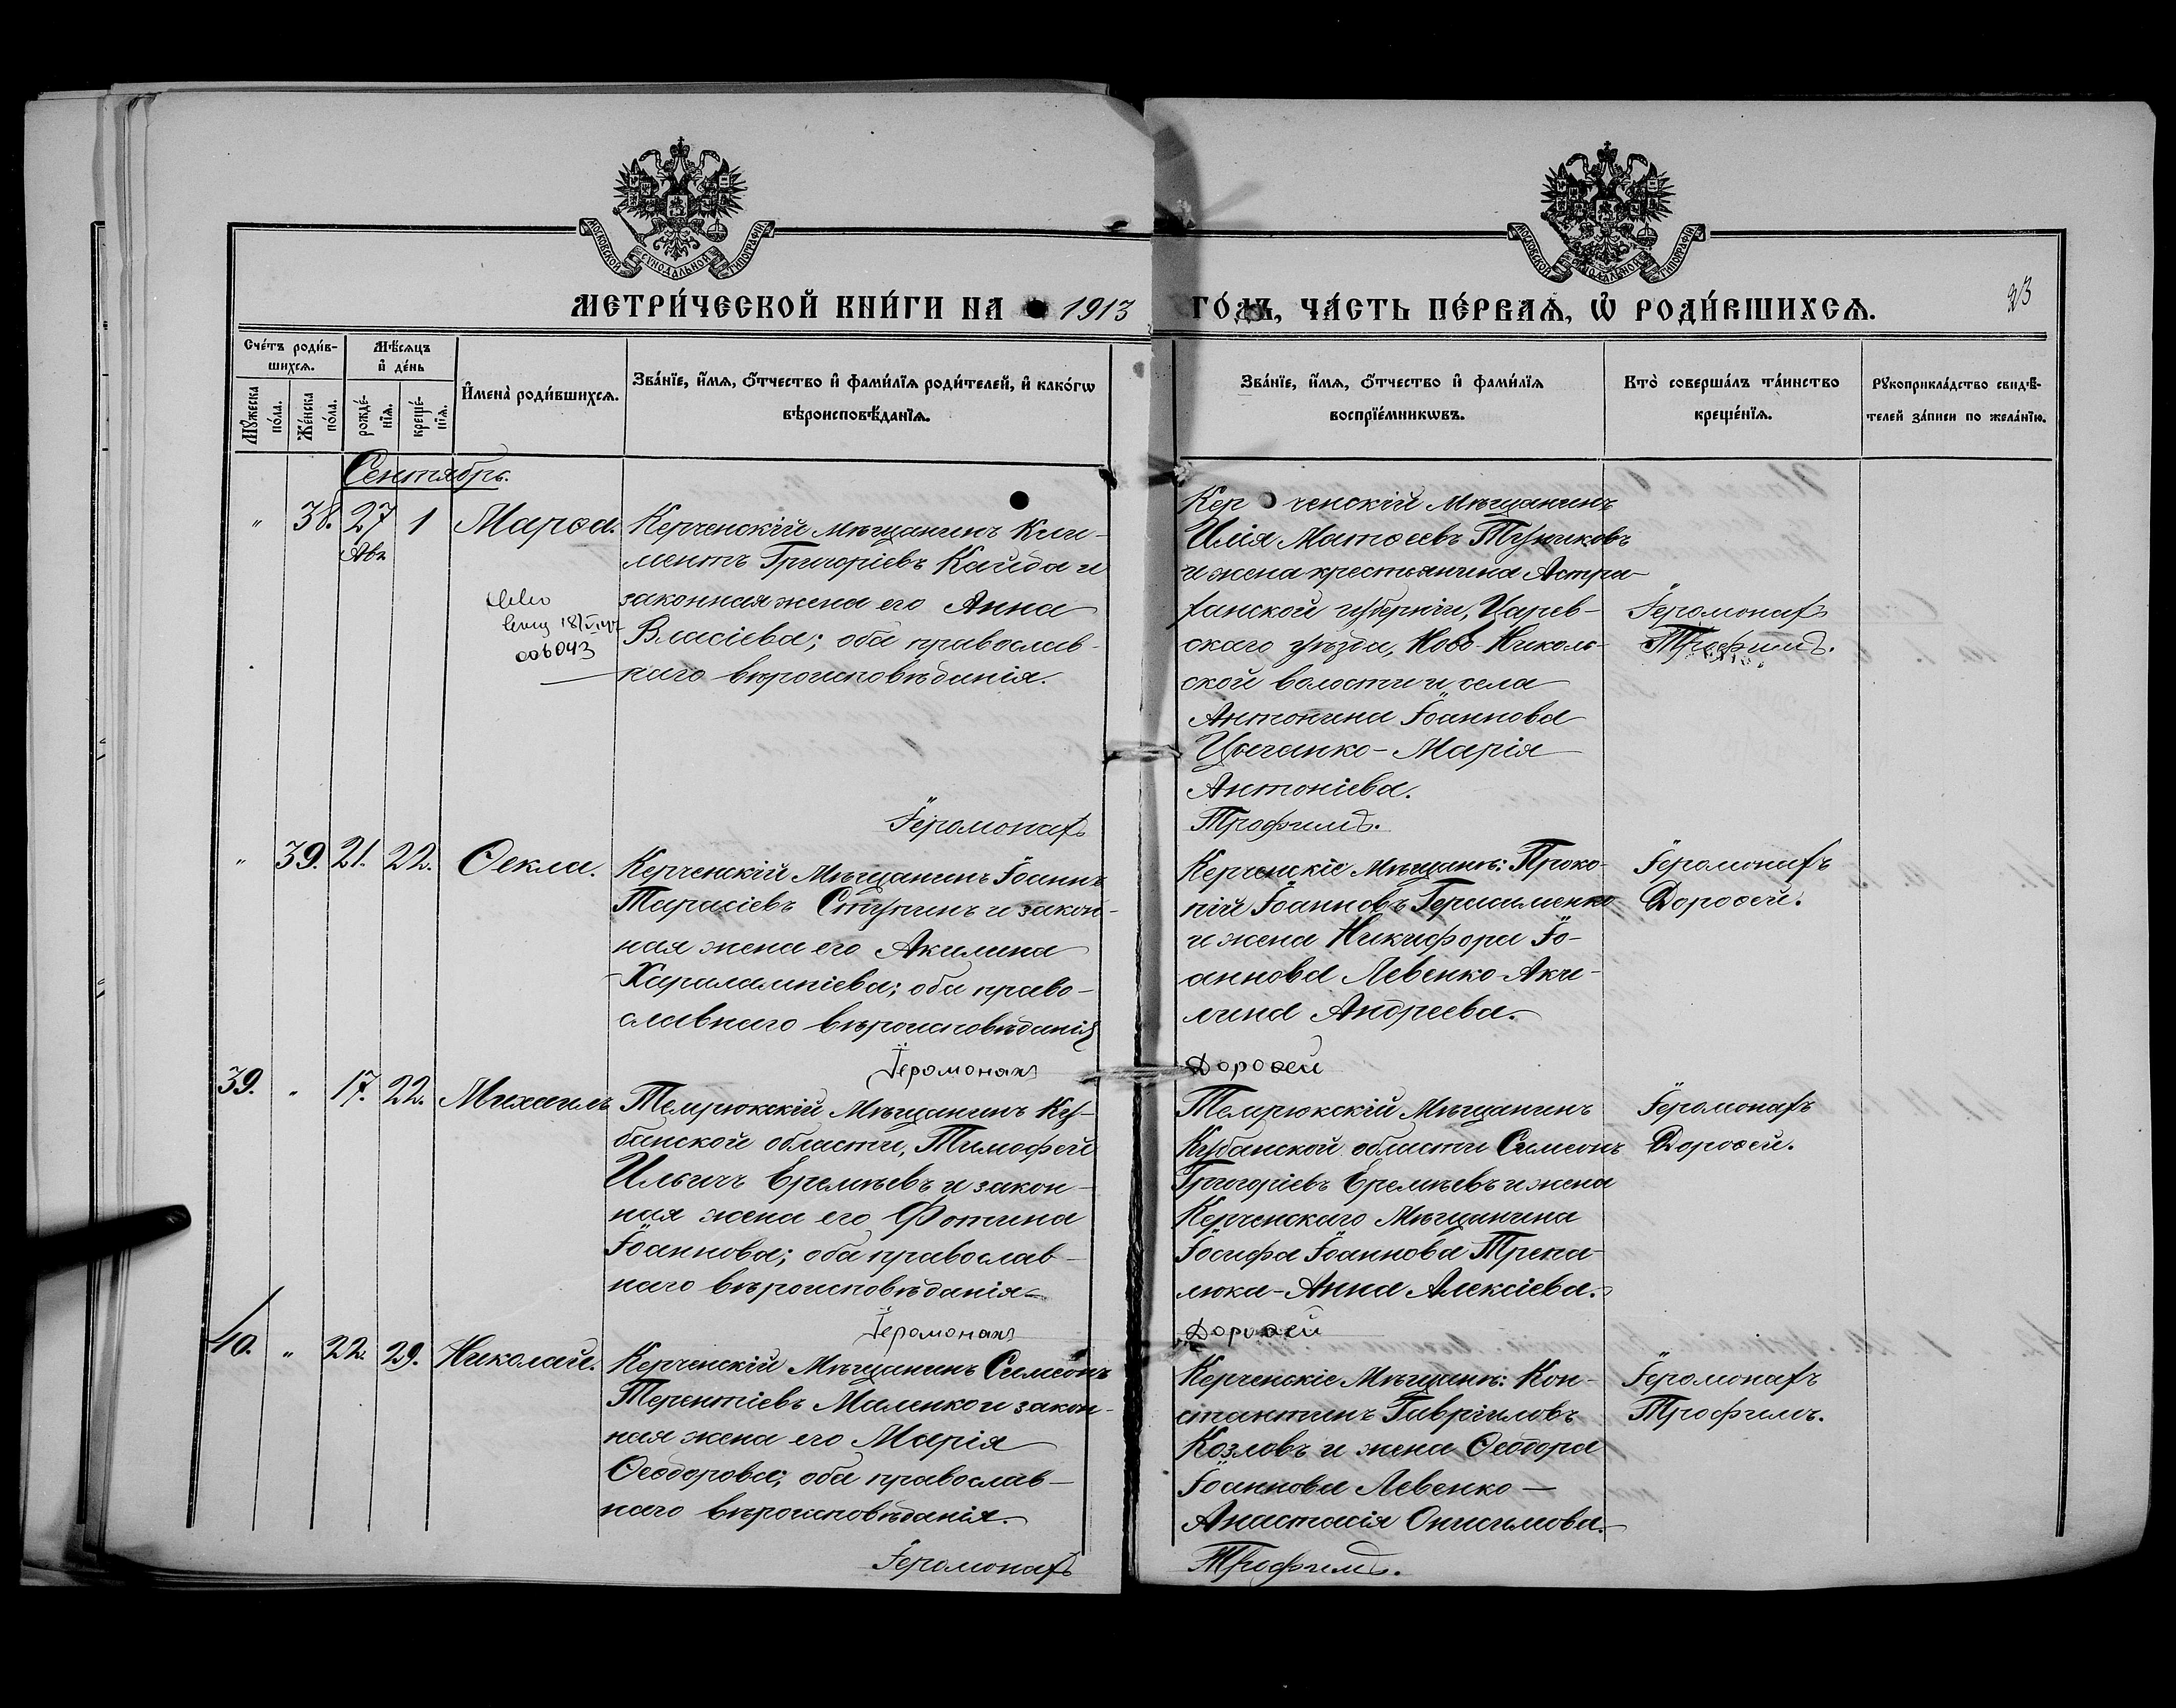 МОСКОВСКОЙ СѴНОДАЛЬНОЙ ТИПОГРАФІИ
МОСКОВСКОЙ СѴНОДАЛЬНОЙ ТИПОГРАФІИ
МЕТРИ́ЧЕСКОЙ КНИ́ГИ НА 1913 ГО́ДЪ, ЧА́СТЬ ПЕ́РВАѦ, Ѡ҆ РОДИ́ВШИХСѦ.
23
Сче́тъ роди́в-
шихсѧ.
Мѣ́сѧцъ
и҆ де́нь
Мꙋ́жеска
по́ла.
Же́нска
по́ла.
рожде́-
нїѧ.
креще́-
нїѧ.
И҆мена̀ роди́вшихсѧ.
Зва́нїе, и҆́мѧ, ѻ҆́тчество и҆ фами́лїѧ роди́телей, и҆ како́гѡ
вѣроисповѣ́данїѧ.
Зва́нїе, и҆́мѧ, ѻ҆́тчество и҆ фами́лїѧ
воспрїе́мникѡвъ.
Кто̀ соверша́лъ та́инство
креще́нїѧ.
Рꙋкоприкла́дство свидѣ́-
телей за́писи по жела́нїю.
Сентябрь.
" 38. 27 1 Марѳа.
Авг.
006043
Керченскій мѣщанинъ Кли-
ментъ Григоріевъ Кайда и
законная жена его Анна
Власіева; оба православ-
наго вѣроисповѣданія.
Керченскій мѣщанинъ
Илія Матѳеевъ Тупиковъ
и жена крестьянина Астра-
ханской губерніи, Царев-
скаго уѣзда, Ново-Николь-
ской волости и села
Антонина Іоаннова
Цыганко - Марія
Антоніева.
Іеромонахъ
Трофимъ.
Іеромонахъ Трофимъ.
" 39. 21. 22. Ѳекла.
Керченскій мѣщанинъ Іоаннъ
Тарасіевъ Ступинъ и закон-
ная жена его Акилина
Харалампіева; оба право-
славнаго вѣроисповѣданія
Керченскіе мѣщане: Проко-
пій Іоанновъ Герасименко
и жена Никифора Іо-
аннова Левенко - Аки-
лина Андреева.
Іеромонахъ
Дороѳей.
Іеромонахъ Дороѳей
39. " 17. 22. Михаилъ
Темрюкскій мѣщанинъ Ку-
банской области, Тимофей
Ильичъ Еремѣевъ и закон-
ная жена его Фотина
Іоаннова; оба православ-
наго вѣроисповѣданія.
Темрюкскій мѣщанинъ
Кубанской области Симеонъ
Григоріевъ Еремѣевъ и жена
Керченскаго мѣщанина
Іосифа Іоаннова Трека-
люка - Анна Алексіева.
Іеромонахъ
Дороѳей.
Іеромонахъ Дороѳей
40. " 22. 29. Николай.
Керченскій мѣщанинъ Симеонъ
Терентіевъ Маленко и закон-
ная жена его Марія
Ѳеодорова; оба православ-
наго вѣроисповѣданія.
Керченскіе мѣщане: Кон-
стантинъ Гавріиловъ
Козловъ и жена Ѳеодора
Іоаннова Левенко -
Анастасія Онисимова.
Іеромонахъ
Трофимъ.
Іеромонахъ Трофимъ.